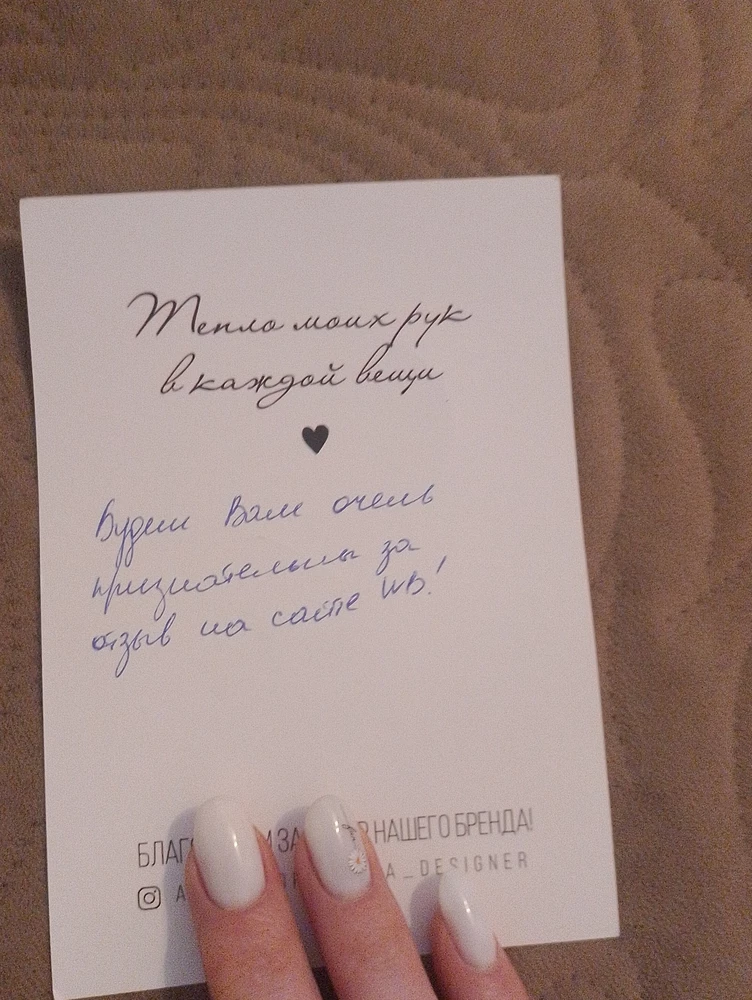 Тепло моих рук
в каждой вещи
Будем Вам очень
признательны за
отзыв на сайте WB!
НАШЕГО БРЕНДА!
DESIGNER